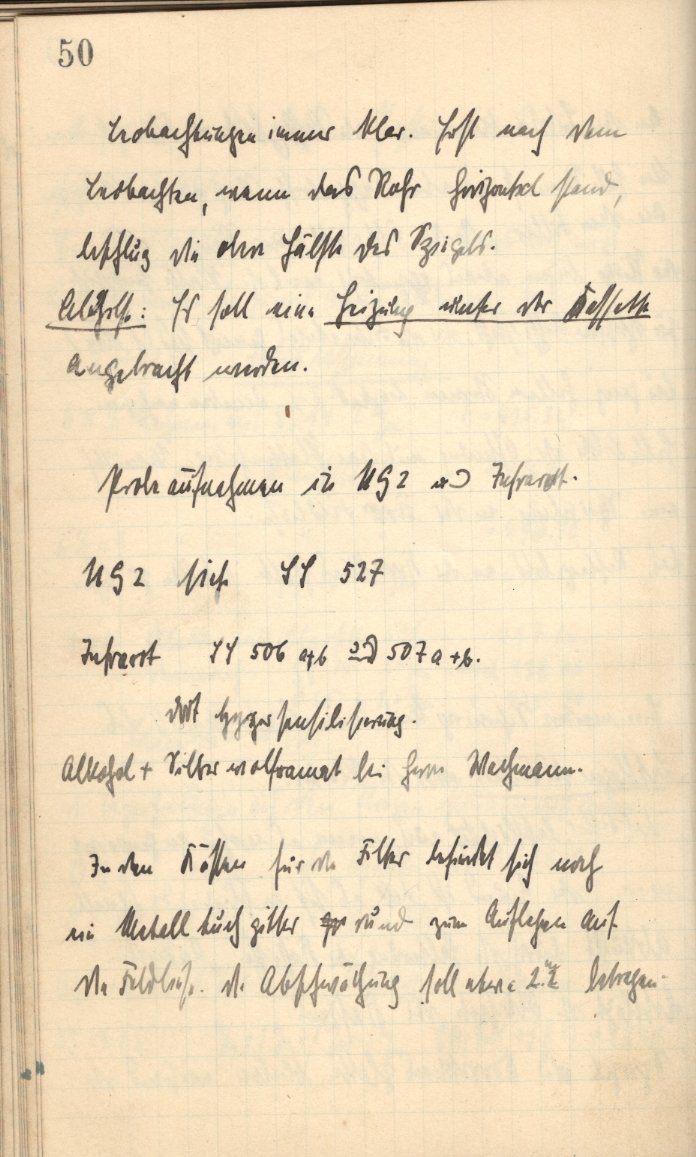 50
Beobachtungen immer klar. Erst nach dem
Beobachten, wenn das Rohr horizontal stand,
beschlug die obere Hälfte des Spiegels.
Abhilfe: Es soll eine Heizung unter der Kassette
angebracht werden.
Probeaufnahmen in UG2 und Infrarot.
UG2 sieh SS 527
Infrarot SS 506 a+b und 507 a+b.
dort Hypersensilisierung.
Alkohol + Silberwolframat bei Herrn Wachmann.
In den Kästen für die Filter befindet sich noch
ein Metalltuchgitter rund zum Auflegen auf
die Feldlinse. die Abschwächung soll etwa 2.m betragen.